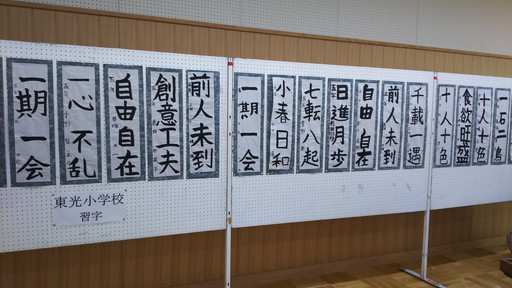 一期一会
一心不乱
自由自在
創意工夫
前人未到
東光小学校
習字
一期一会
小春日和
七転八起
日進月歩
自由自在
前人未到
千載一遇
十人十色
食飲旺盛
十人十色
一石二鳥